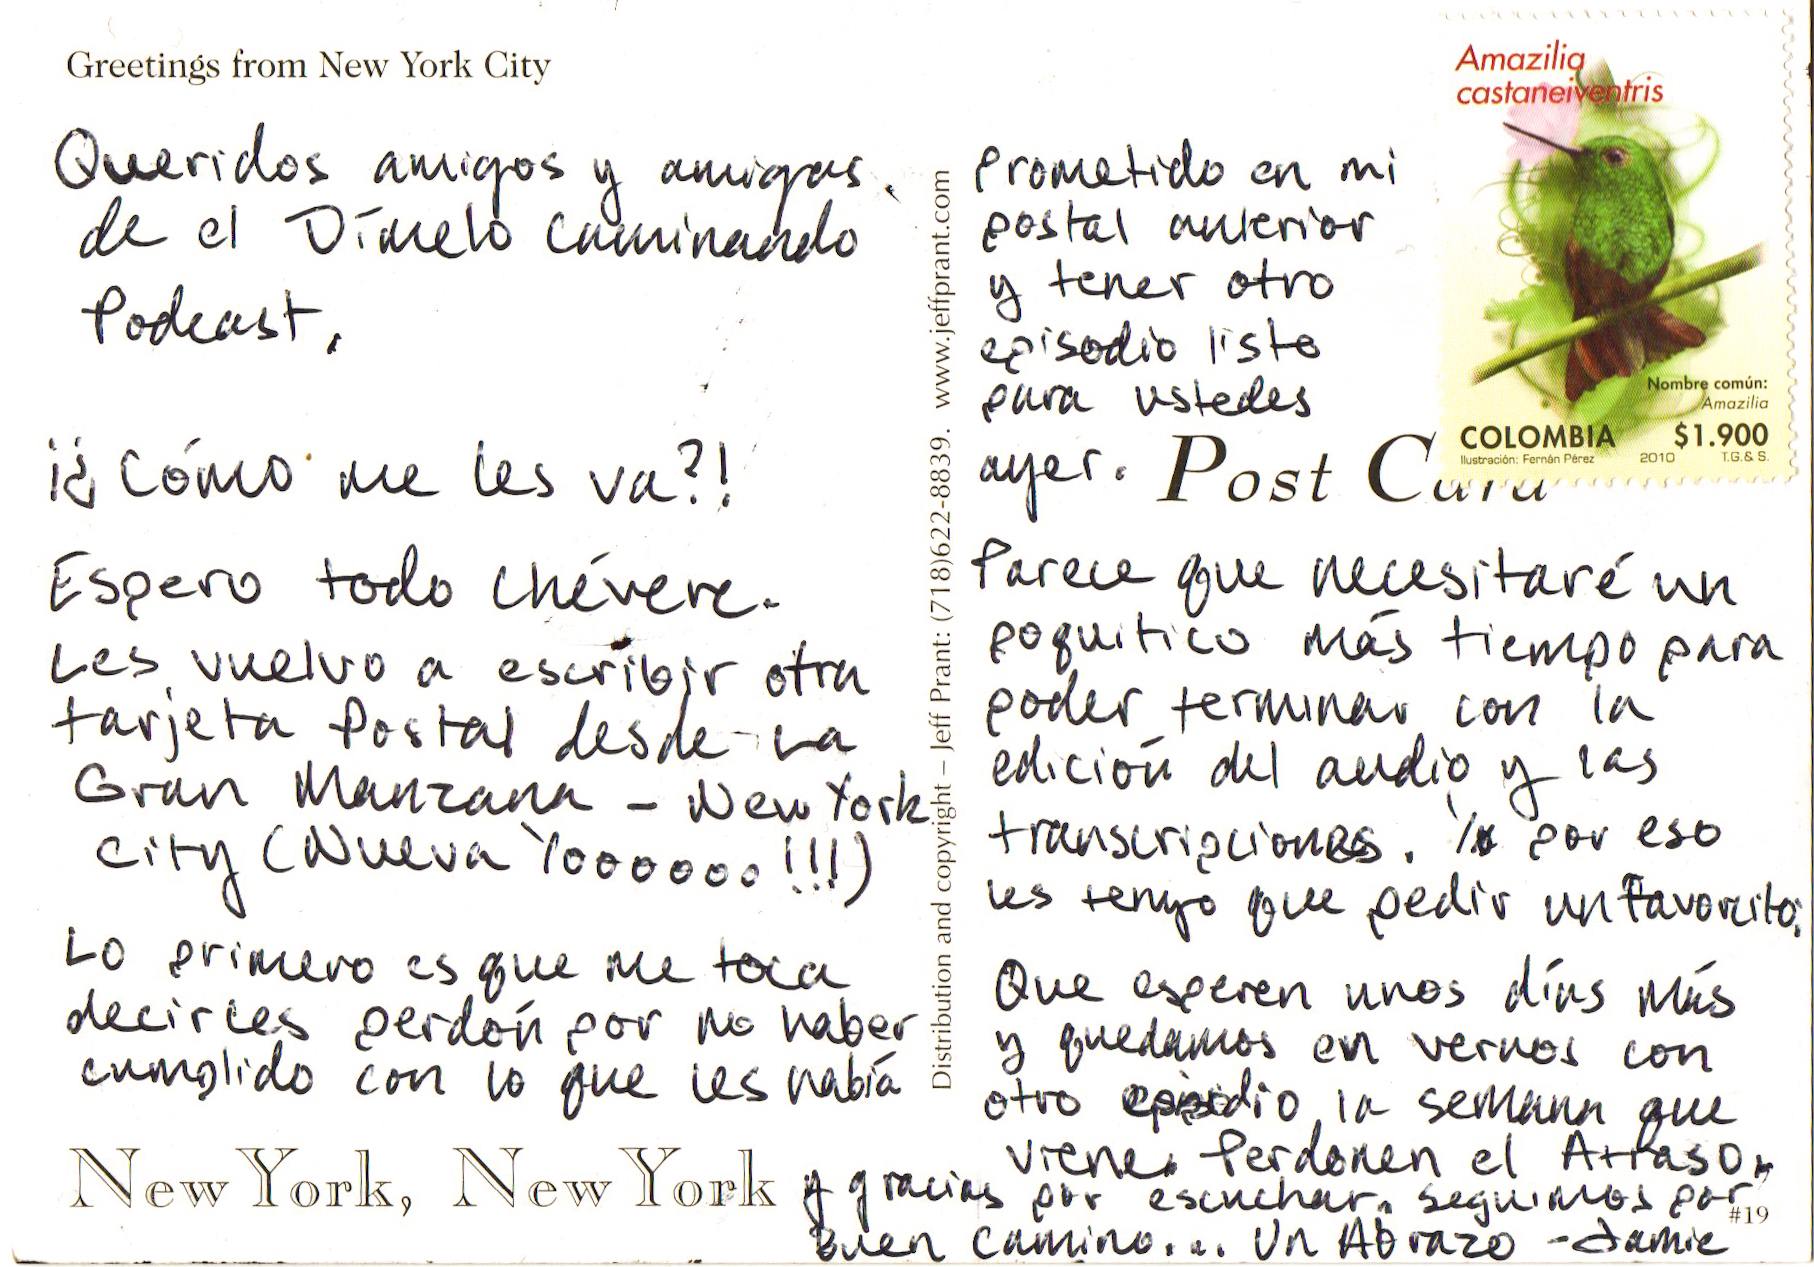 Greetings from New York City
Queridos amigos y amigas
de el Dímelo Caminando
Podcast,
¡¿Cómo me les va?!
Espero todo chévere.
Les vuelvo a escribir otra
tarjeta Postal desde La
Gran Manzana - New York
City (Nueva Yoooooo!!!)
Lo primero es que me toca
decirles perdón por no haber
cumplido con lo que les había
New York, New York
Distribution and copyright – Jeff Prant: (718)622-8839. www.jeffprant.com
prometido en mi
postal anterior
y tener otro
episodio listo
para ustedes
ayer.
Post Card
Parece que necesitaré un
poquitico más tiempo para
poder terminar con la
edición del audio y las
transcripciones. Y por eso
les tengo que pedir un favorcito:
Que esperen unos días más
y quedamos en vernos con
otro episodio la semana que
viene. Perdonen el Atraso,
y gracias por escuchar. Seguimos por
Buen camino... Un Abrazo - Jamie
#19
Amazilia
castaneiventris
Nombre común:
Amazilia
COLOMBIA $1.900
Ilustración: Fernán Pérez 2010 T.G.& S.